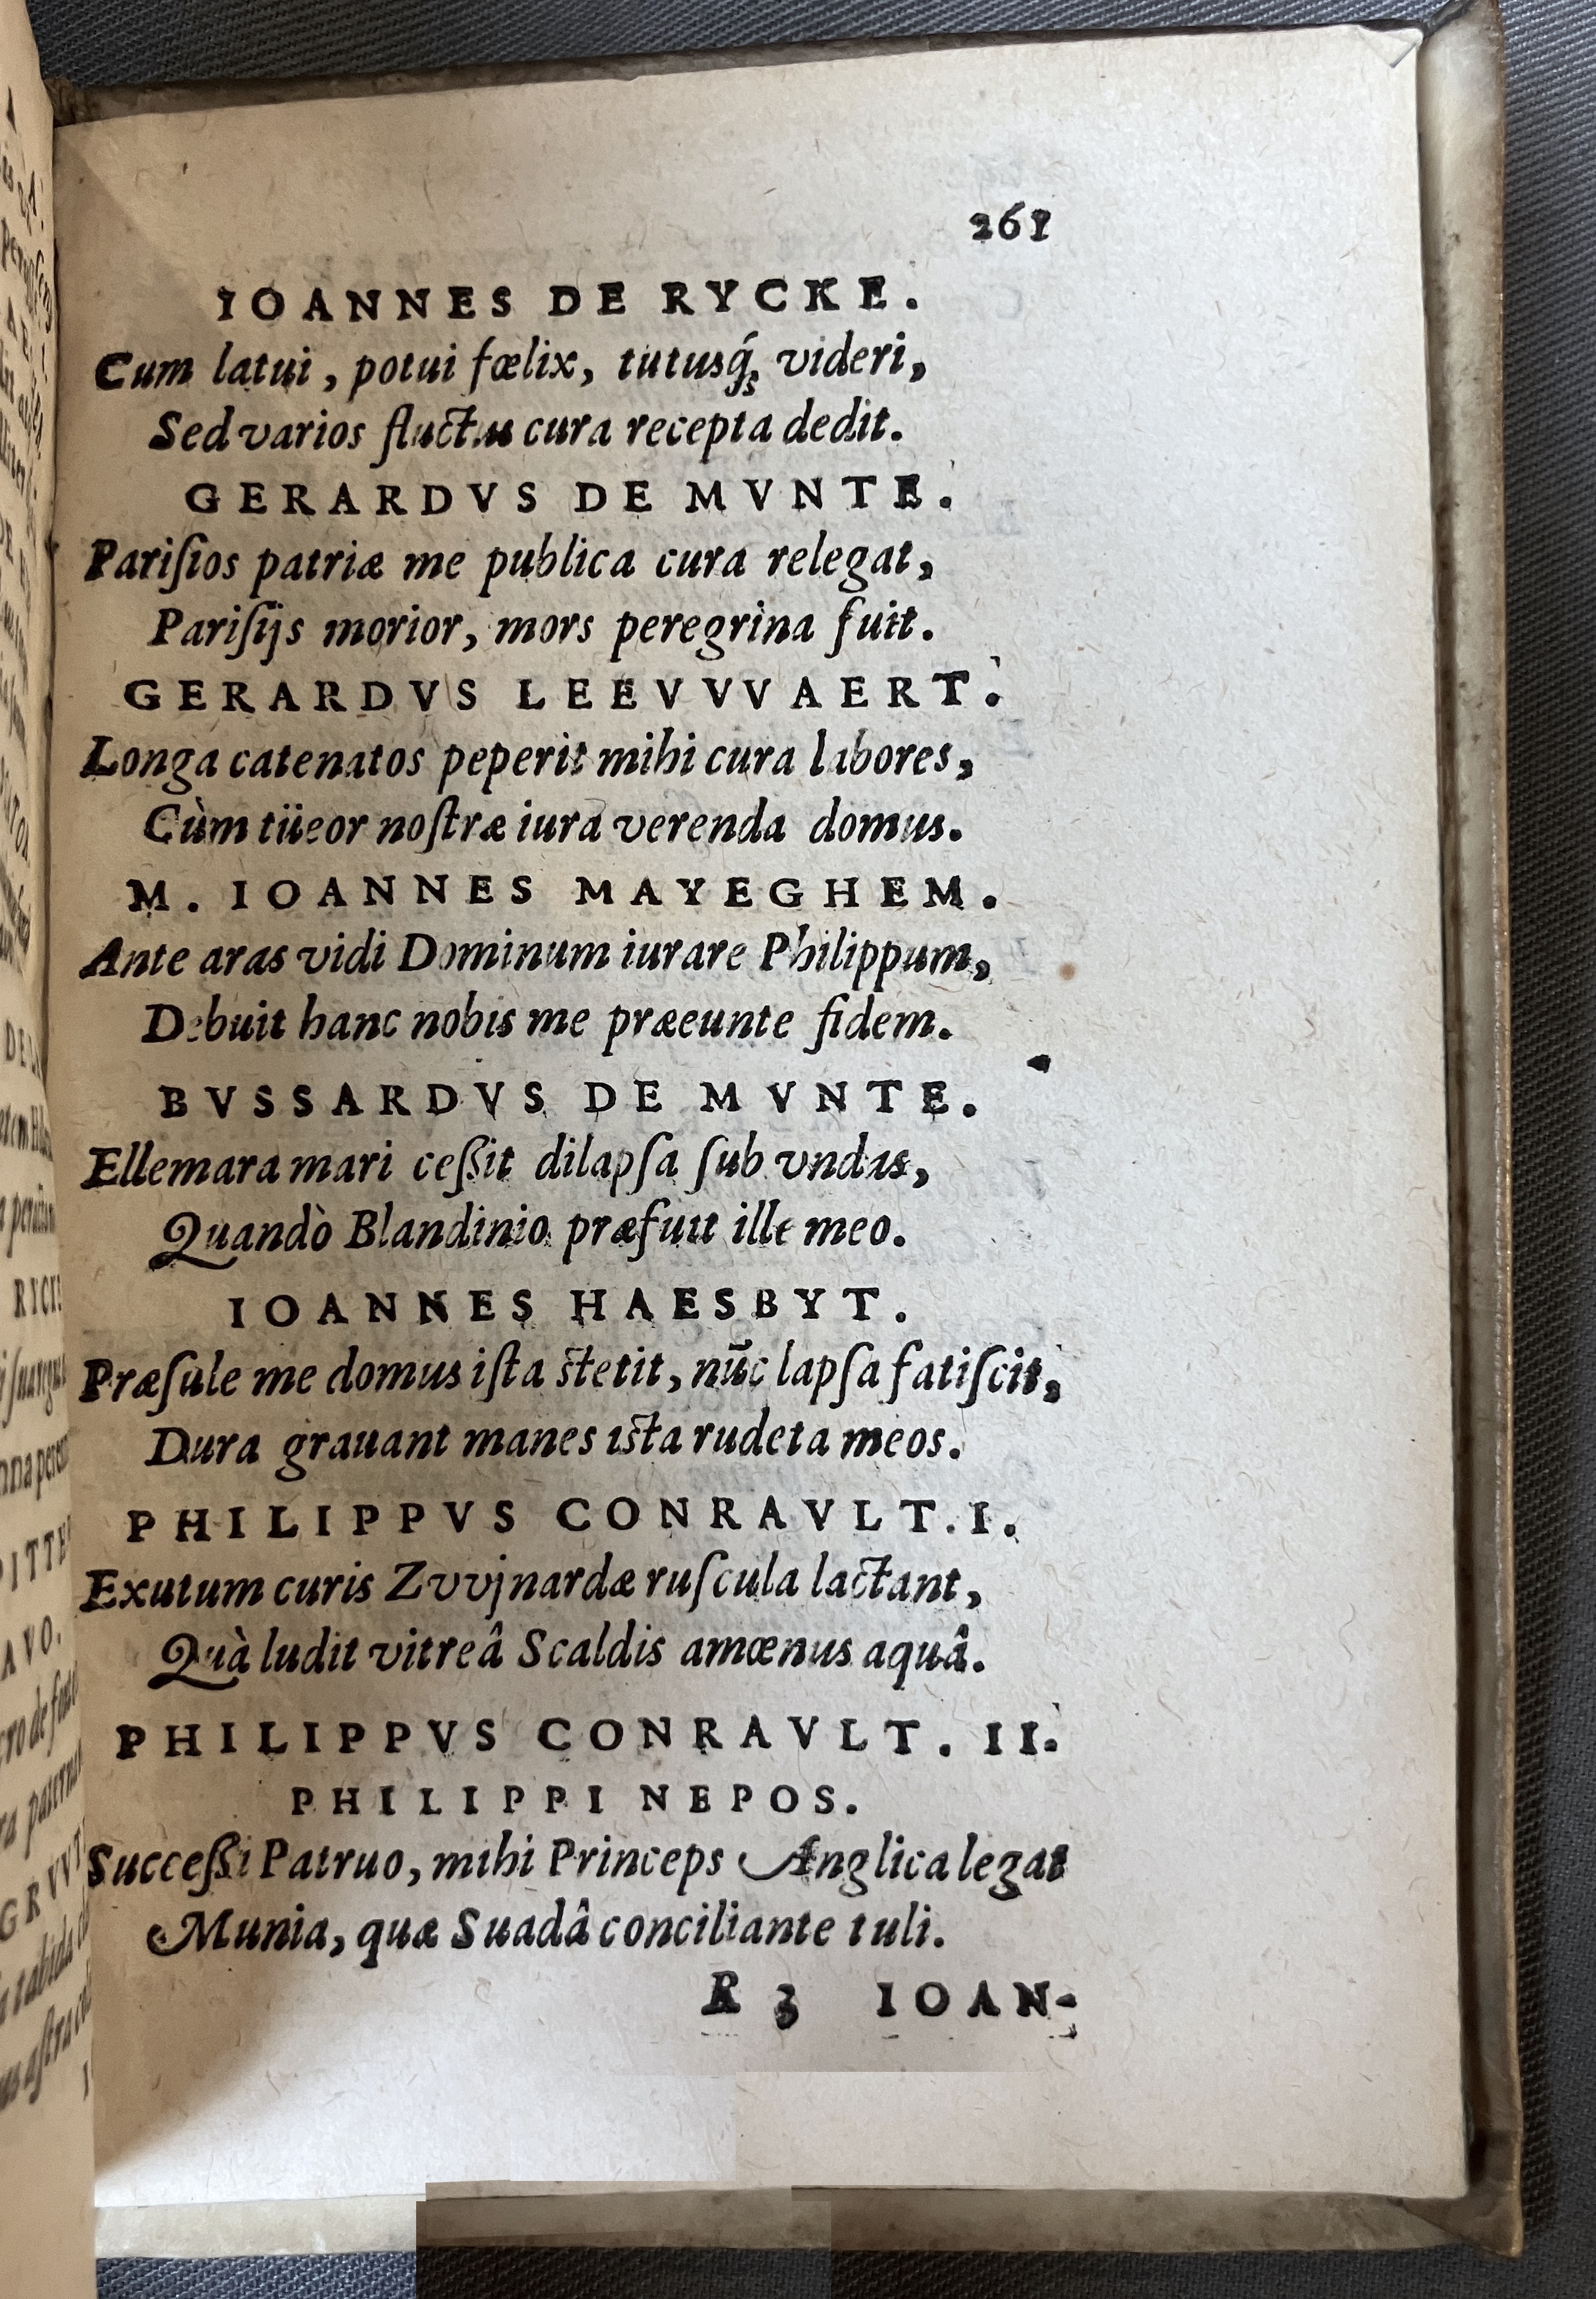 261
IOANNES DE RYCKE.
Cum latui, potui fœlix, tutusq́; videri,
Sed varios fluctus cura recepta dedit.
GERARDVS DE MVNTE.
Pariſios patriæ me publica cura relegat,
Pariſijs morior, mors peregrina fuit.
GERARDVS LEEVVVAERT.
Longa catenatos peperit mihi cura labores,
Cùm tüeor noſtræ iura verenda domus.
M. IOANNES MAYEGHEM.
Ante aras vidi Dominum iurare Philippum,
Debuit hanc nobis me præeunte fidem.
BVSSARDVS DE MVNTE.
Ellemara mari ceſſit dilapſa ſub vndas,
Quandò Blandinio præfuit ille meo.
IOANNES HAESBYT.
Præſule me domus iſta ſtetit, nūc lapſa fatiſcit,
Dura grauant manes iſta rudeta meos.
PHILIPPVS CONRAVLT. I.
Exutum curis Zvvjnardæ ruſcula lactant,
Quà ludit vitreâ Scaldis amœnus aquâ.
PHILIPPVS CONRAVLT. II.
PHILIPPI NEPOS.
Succeſſi Patruo, mihi Princeps Anglica legat
Munia, quæ Suadâ conciliante tuli.
R 3 IOAN-